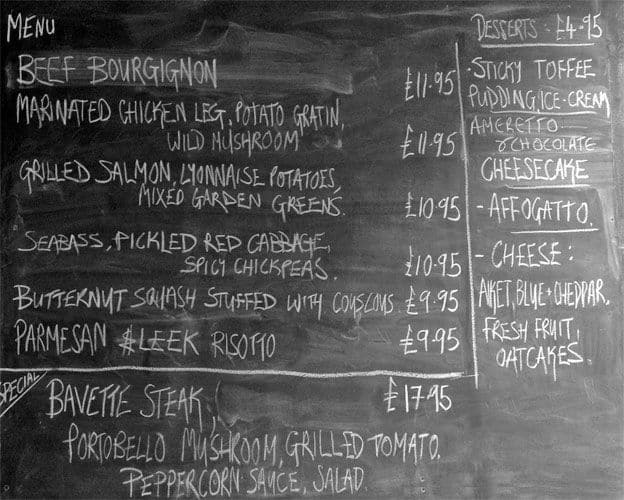 MENU
BEEF BOURGIGNON £11.95
MARINATED CHICKEN LEG, POTATO GRATIN,
WILD MUSHROOM £11.95
GRILLED SALMON, LYONNAISE POTATOES,
MIXED GARDEN GREENS. £10.95
SEABASS, PICKLED RED CABBAGE,
SPICY CHICKPEAS. £10.95
BUTTERNUT SQUASH STUFFED WITH COUSCOUS £9.95
PARMESAN & LEEK RISOTTO £9.95
DESSERTS · £4.95
·STICKY TOFFEE
PUDDING, ICE·CREAM
AMERETTO
& CHOCOLATE
CHEESECAKE
- AFFOGATTO.
- CHEESE:
BLUE + CHEDDAR,
FRESH FRUIT,
OATCAKES.
SPECIAL
BAVETTE STEAK, £17.95
PORTOBELLO MUSHROOM, GRILLED TOMATO,
PEPPERCORN SAUCE, SALAD.